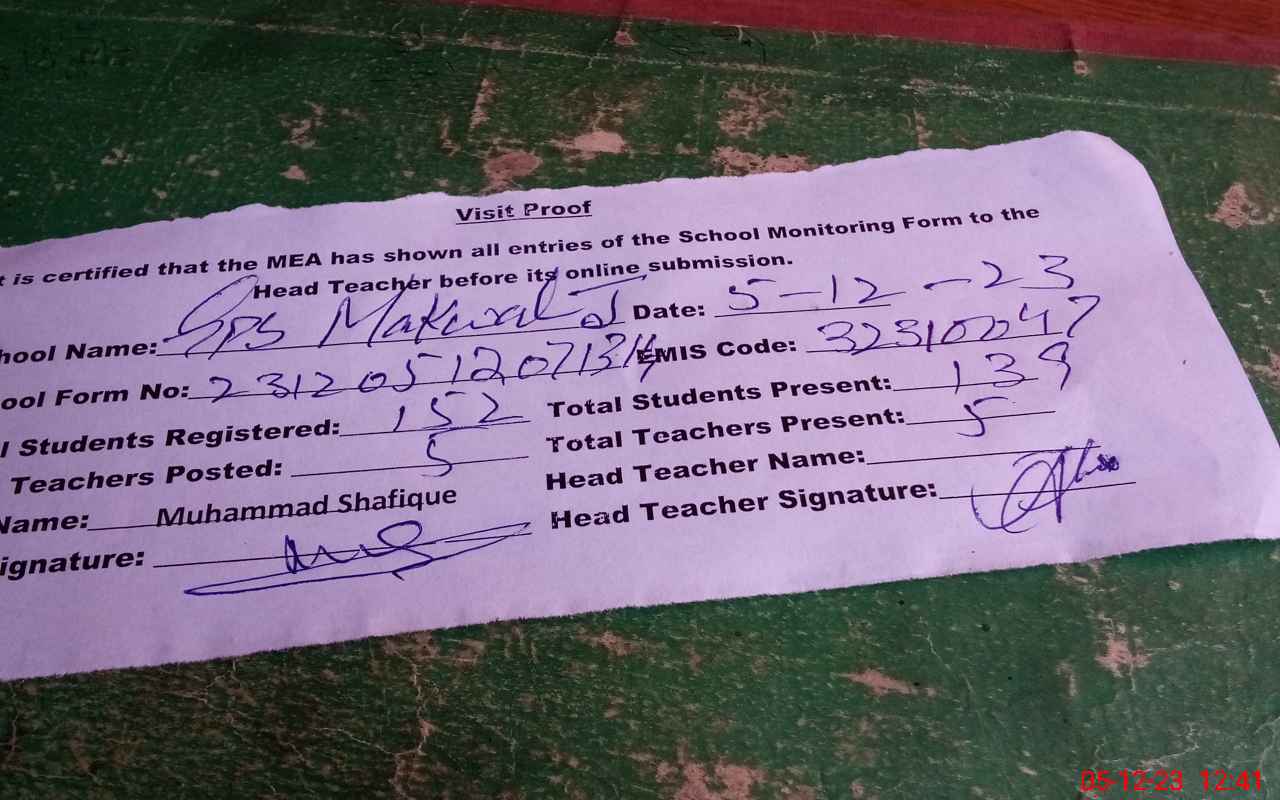 Visit Proof
t is certified that the MEA has shown all entries of the School Monitoring Form to the
Head Teacher before its online submission.
hool Name: GPS Makwal Date: 5-12-23
ool Form No: EMIS Code: 32310047
l Students Registered: 152 Total Students Present: 139
Teachers Posted: 5 Total Teachers Present: 5
Name: Muhammad Shafique Head Teacher Name:
ignature: Head Teacher Signature:
05-12-23 12:41